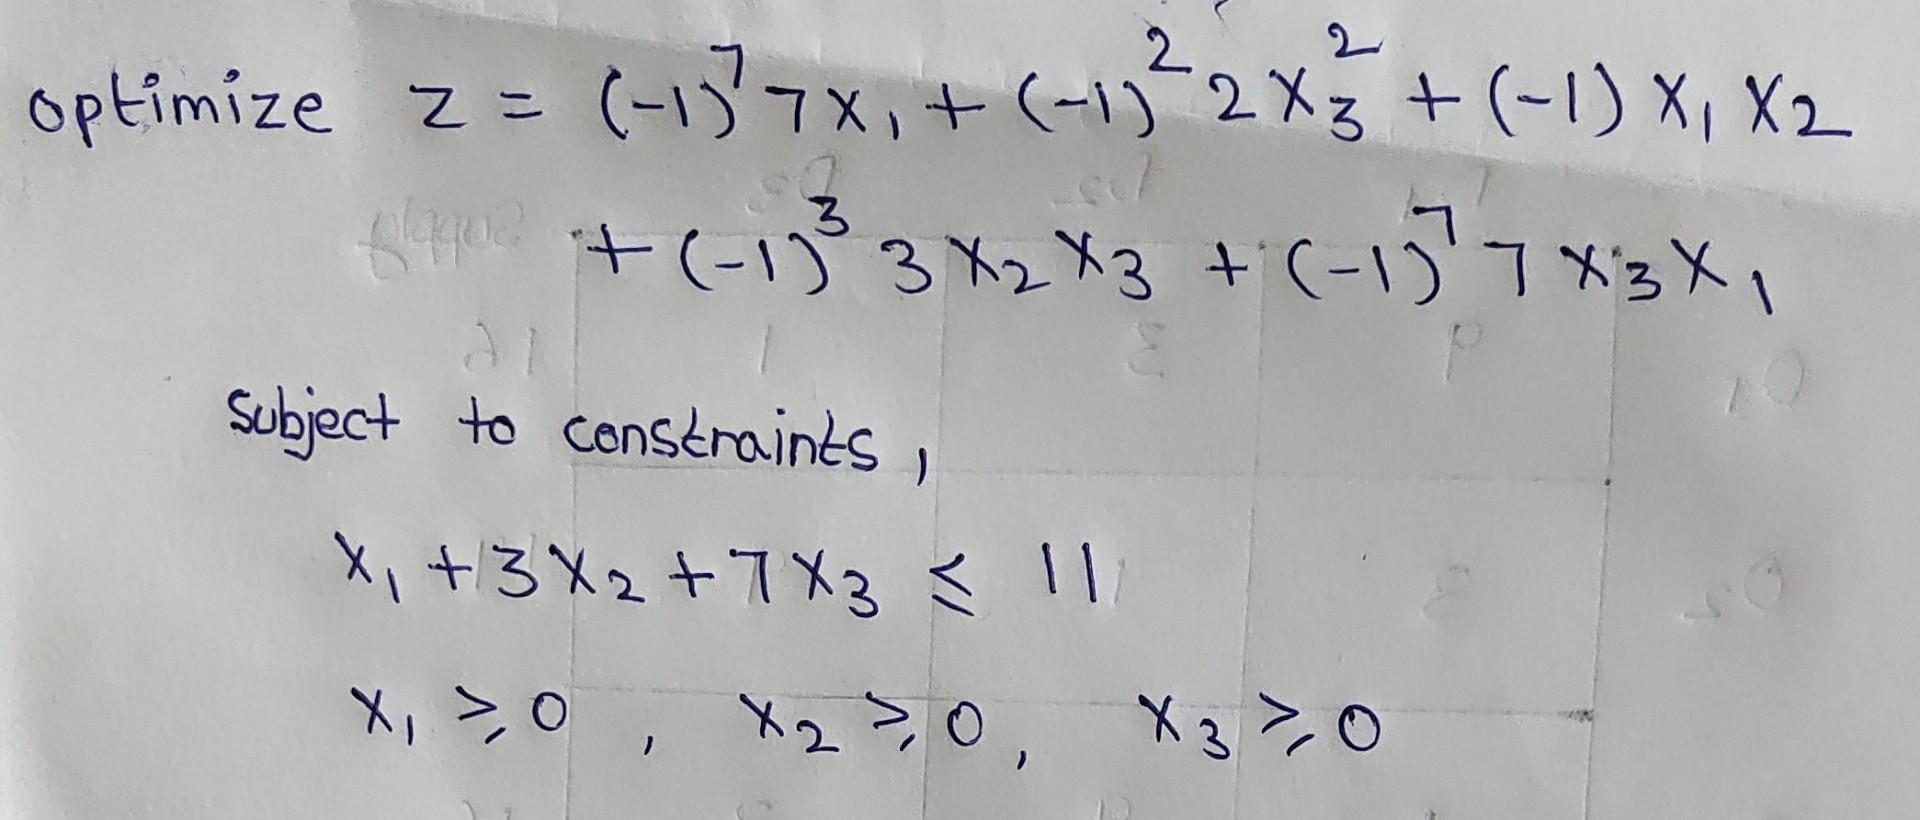 optimize z = (-1)⁷ 7x₁ + (-1)² 2x₃² + (-1) x₁ x₂
+ (-1)³ 3 x₂ x₃ + (-1)⁷ 7 x₃ x₁
subject to constraints,
x₁ + 3x₂ + 7x₃ ≤ 11
x₁ ≥ 0, x₂ ≥ 0, x₃ ≥ 0